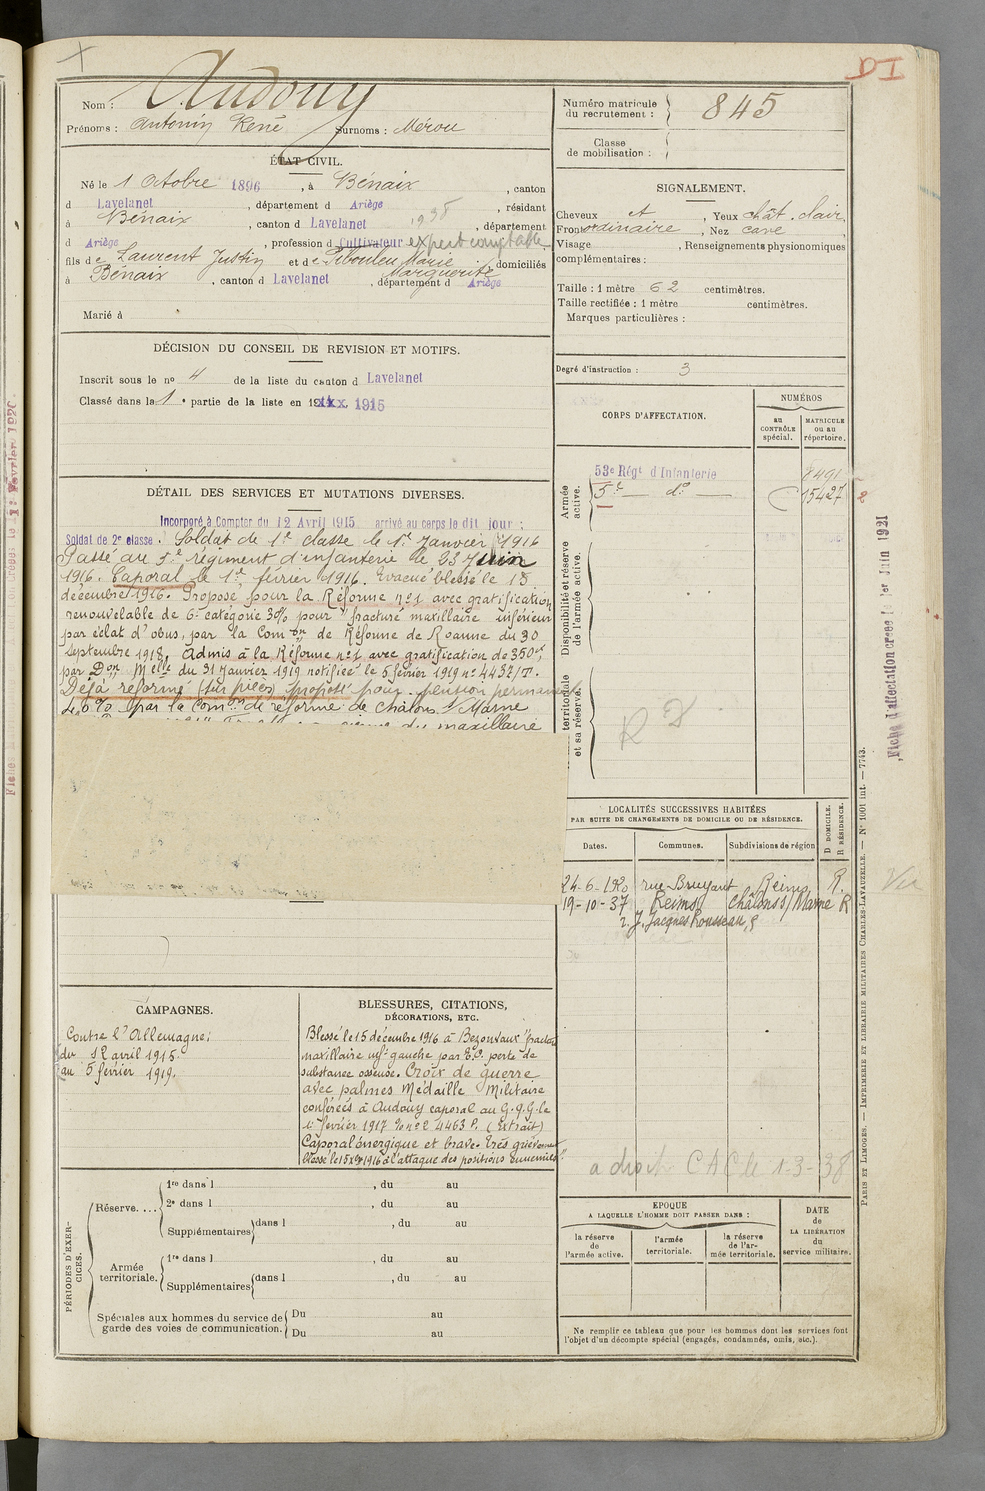 D I
Nom : Audouy
Prénoms : Antonin René Surnoms : Mérou
ÉTAT CIVIL.
Né le 1 Octobre 1896, à Bénaix, canton
d Lavelanet, département d Ariège, résidant
à Bénaix, canton d Lavelanet 1938, département
d Ariège, profession d Cultivateur expert comptable
fils de Laurent Justin et de Pibouleu Marie Marguerite domiciliés
à Bénaix, canton d Lavelanet, département d Ariège
Marié à
DÉCISION DU CONSEIL DE REVISION ET MOTIFS.
Inscrit sous le no 4 de la liste du canton d Lavelanet
Classé dans la 1e partie de la liste en 1915
DÉTAIL DES SERVICES ET MUTATIONS DIVERSES.
Incorporé à Compter du 12 Avril 1915 arrivé au corps le dit jour ;
Soldat de 2e classe. Soldat de 1e classe le 1er Janvier 1916
Passé au 5e régiment d'infanterie le 23 Juin
1916. Caporal le 1er février 1916. Evacué blessé le 15
décembre 1916. Proposé pour la Réforme no1 avec gratification
renouvelable de 6e catégorie 30% pour "fracture maxillaire inférieur
par éclat d'obus, par la Com on de Réforme de Roanne du 30
Septembre 1918. Admis à la Réforme no1 avec gratification de 350f,
par Don Melle du 31 Janvier 1919 notifiée le 5 février 1919 no 4437/T.
Déjà réformé (sur pièces) proposé pour pension permanente
40% par la Comon de réforme de Châlons s/ Marne
du maxillaire
CAMPAGNES.
Contre l'Allemagne;
du 12 avril 1915
au 5 février 1919.
BLESSURES, CITATIONS,
DÉCORATIONS, ETC.
Blessé le 15 décembre 1916 à Bezonvaux "fracture
maxillaire inf. gauche par E.O. perte de
substance osseuse. Croix de guerre
avec palmes Médaille Militaire
conférées à Audouy caporal au G.Q.G. le
1er février 1917 no 4463 D. (Extrait)
Caporal énergique et brave. Très grièvement
blessé le 15 Xbre 1916 à l'attaque des positions ennemies".
PÉRIODES D'EXERCICES.
Réserve....
1re dans l , du au
2e dans l , du au
Supplémentaires dans l , du au
Armée territoriale.
1re dans l , du au
Supplémentaires dans l , du au
Spéciales aux hommes du service de garde des voies de communication.
Du au
Du au
Numéro matricule du recrutement : 845
Classe de mobilisation :
SIGNALEMENT.
Cheveux ct, Yeux chât. clair,
Front ordinaire, Nez cave
Visage , Renseignements physionomiques
complémentaires :
Taille : 1 mètre 62 centimètres.
Taille rectifiée : 1 mètre centimètres.
Marques particulières :
Degré d'instruction : 3
CORPS D'AFFECTATION.
NUMÉROS
au CONTRÔLE spécial.
MATRICULE ou au répertoire.
Armée active.
53e Régt d'Infanterie 8491
5e do 15427
2
Disponibilité et réserve de l'armée active.
territoriale et sa réserve.
R D
LOCALITÉS SUCCESSIVES HABITÉES
PAR SUITE DE CHANGEMENTS DE DOMICILE OU DE RÉSIDENCE.
Dates. Communes. Subdivisions de région
D DOMICILE.
R RÉSIDENCE.
24-6-1920 rue Bruyant Reims R.
19-10-37 Reims Châlons s/ Marne R
r. J. Jacques Rousseau, 9
Vu
a droit CAC le 1-3-38
EPOQUE
A LAQUELLE L'HOMME DOIT PASSER DANS :
la réserve de l'armée active.
l'armée territoriale.
la réserve de l'armée territoriale.
DATE de LA LIBÉRATION du service militaire.
Ne remplir ce tableau que pour les hommes dont les services font
l'objet d'un décompte spécial (engagés, condamnés, omis, etc.).
Fiche d'affectation créée le 1er Juin 1921
PARIS ET LIMOGES. — IMPRIMERIE ET LIBRAIRIE MILITAIRES CHARLES-LAVAUZELLE. — No 1001 int. — 7743.